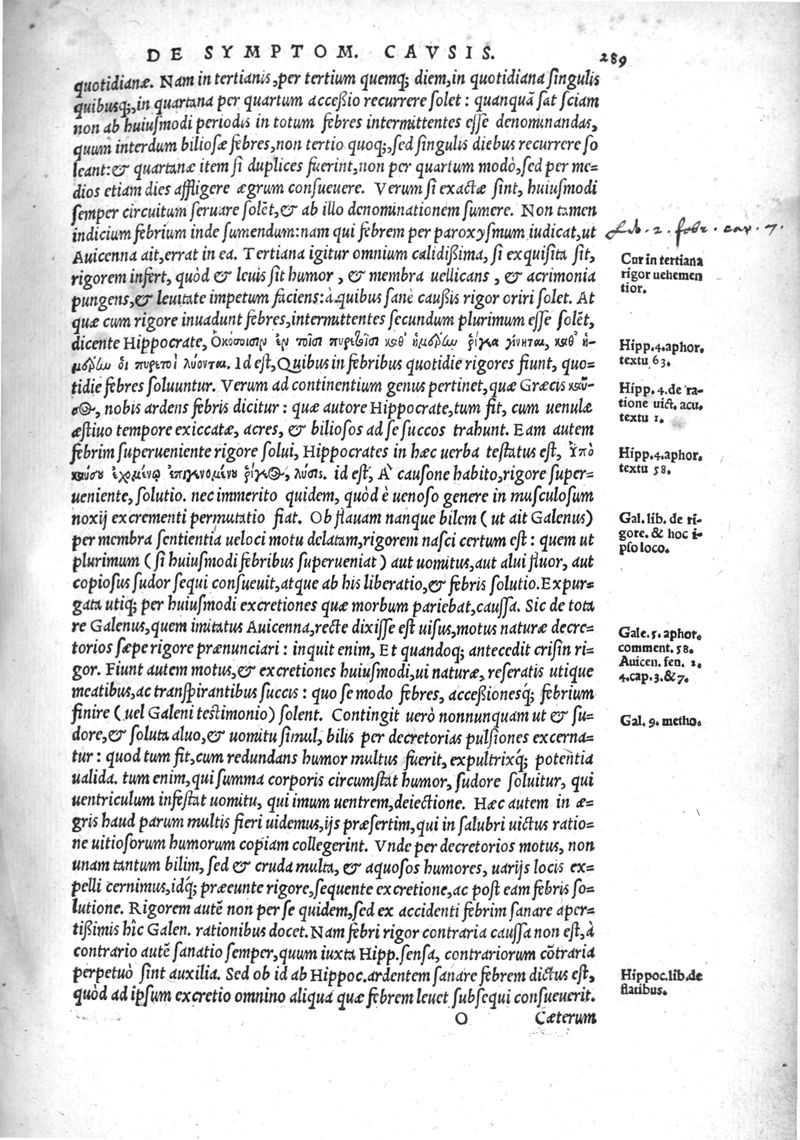 DE SYMPTOM. CAVSIS.
289
quotidianæ. Nam in tertianis, per tertium quemq; diem, in quotidiana singulis
quibusq;, in quartana per quartum accessio recurrere solet: quanquã sat sciam
non ab huiusmodi periodis in totum febres intermittentes esse denominandas,
quum interdum biliosæ febres, non tertio quoq;, sed singulis diebus recurrere so
leant: & quartanæ item si duplices fuerint, non per quartum modò, sed per me=
dios etiam dies affligere ægrum consueuere. Verum si exactæ sint, huiusmodi
semper circuitum seruare solẽt, & ab illo denominationem sumere. Non tamen
indicium febrium inde sumendum: nam qui febrem per paroxysmum iudicat, ut
Auicenna ait, errat in ea. Tertiana igitur omnium calidissima, si exquisita sit,
rigorem infert, quòd & leuis sit humor, & membra uellicans, & acrimonia
pungens, & leuitate impetum faciens: à quibus sanè caussis rigor oriri solet. At
quæ cum rigore inuadunt febres, intermittentes secundum plurimum esse solẽt,
dicente Hippocrate, Ὁκόσοισιν ἐν τοῖσι πυρετοῖσι καθ' ἡμέρlω ῥίγεα γίνηται, καθ' ἡ-
μέρlω οἱ πυρετοὶ λύονται. Id est, Quibus in febribus quotidie rigores fiunt, quo=
tidie febres soluuntur. Verum ad continentium genus pertinet, quæ Græcis καῦ-
σος, nobis ardens febris dicitur: quæ autore Hippocrate, tum fit, cum uenulæ
æstiuo tempore exiccatæ, acres, & biliosos ad se succos trahunt. Eam autem
febrim superueniente rigore solui, Hippocrates in hæc uerba testatus est, Ὑπὸ
καύσου ἐχομένῳ ἐπιγινομένου ῥίγεος, λύσις. id est, A' causone habito, rigore super=
ueniente, solutio. nec immerito quidem, quòd è uenoso genere in musculosum
noxij excrementi permutatio fiat. Ob flauam nanque bilem (ut ait Galenus)
per membra sentientia ueloci motu delatam, rigorem nasci certum est: quem ut
plurimum (si huiusmodi febribus superueniat) aut uomitus, aut alui fluor, aut
copiosus sudor sequi consueuit, atque ab his liberatio, & febris solutio. Expur=
gata utiq; per huiusmodi excretiones quæ morbum pariebat, caussa. Sic de tota
re Galenus, quem imitatus Auicenna, recte dixisse est uisus, motus naturæ decre=
torios sæpe rigore prænunciari: inquit enim, Et quandoq; antecedit crisin ri=
gor. Fiunt autem motus, & excretiones huiusmodi, ui naturæ, reseratis utique
meatibus, ac transpirantibus succis: quo se modo febres, accessionesq́; febrium
finire (uel Galeni testimonio) solent. Contingit uerò nonnunquam ut & su=
dore, & soluta aluo, & uomitu simul, bilis per decretorias pulsiones excerna=
tur: quod tum fit, cum redundans humor multus fuerit, expultrixq́; potentia
ualida. tum enim, qui summa corporis circumstat humor, sudore soluitur, qui
uentriculum infestat uomitu, qui imum uentrem, deiectione. Hæc autem in æ=
gris haud parum multis fieri uidemus, ijs præsertim, qui in salubri uictus ratio=
ne uitiosorum humorum copiam collegerint. Vnde per decretorios motus, non
unam tantum bilim, sed & cruda multa, & aquosos humores, uarijs locis ex=
pelli cernimus, idq́; præeunte rigore, sequente excretione, ac post eam febris so=
lutione. Rigorem autẽ non per se quidem, sed ex accidenti febrim sanare aper=
tissimis hîc Galen. rationibus docet. Nam febri rigor contraria caussa non est, à
contrario autẽ sanatio semper, quum iuxta Hipp. sensa, contrariorum cõtraria
perpetuò sint auxilia. Sed ob id ab Hippoc. ardentem sanare febrem dictus est,
quòd ad ipsum excretio omnino aliqua quæ febrem leuet subsequi consueuerit.
O
Cæterum
Lib. 2. febr. cap. 7.
Cur in tertiana
rigor uehemen
tior.
Hipp. 4. aphor.
textu 63.
Hipp. 4. de ra-
tione uict. acu.
textu 1.
Hipp. 4. aphor.
textu 58.
Gal. lib. de ri-
gore. & hoc i-
pso loco.
Gale. 5. aphor.
comment. 58.
Auicen. fen. 2.
4. cap. 3. & 7.
Gal. 9. metho.
Hippoc. lib. de
flatibus.